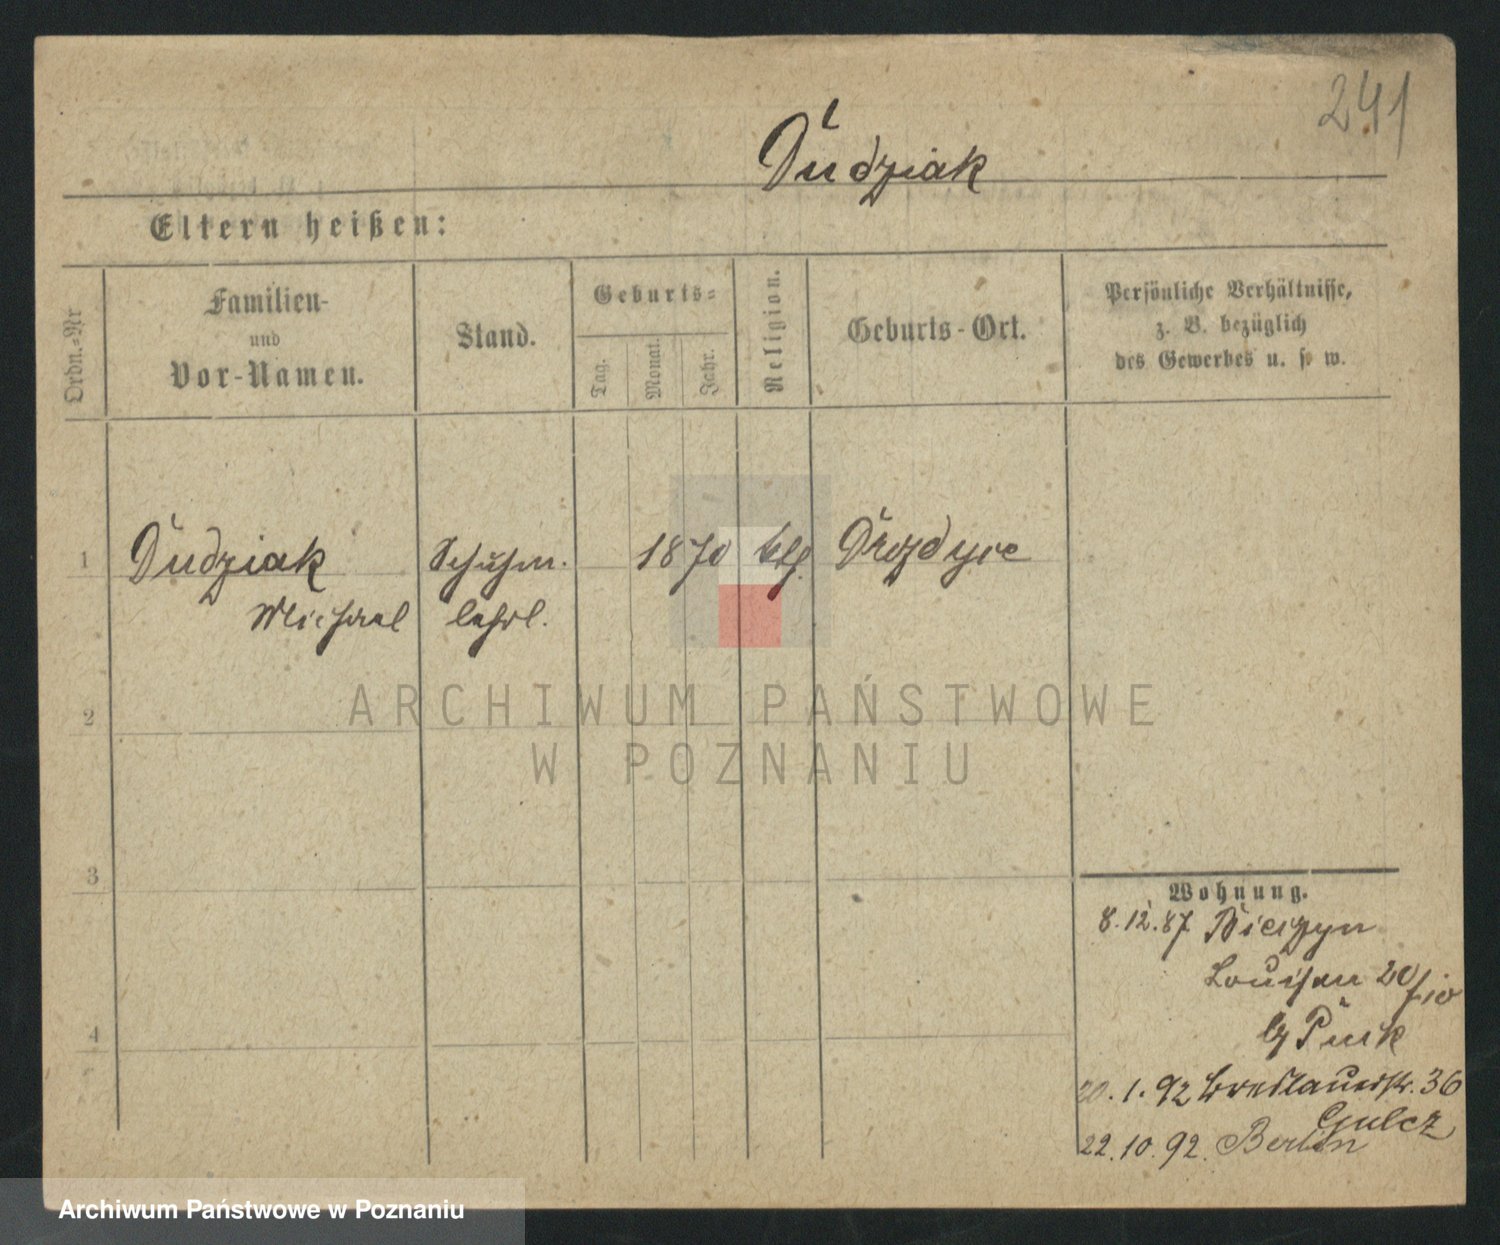 241
Dudziak
Eltern heißen:
Ordn.-Nr
Familien-
und
Vor-Namen.
Stand.
Geburts-
Tag.
Monat.
Jahr.
Religion.
Geburts-Ort.
Persönliche Verhältnisse,
z. B. bezüglich
des Gewerbes u. s w.
1
Dudziak Schuhm. 1870 kth. Drozdyce
Michael lehrl.
2
ARCHIWUM PAŃSTWOWE
W POZNANIU
3
Wohnung.
8.12.87
Louisen 20/10
4
20.1.92 Breslauerstr. 36
Gulcz
22.10.92. Berlin
Archiwum Państwowe w Poznaniu